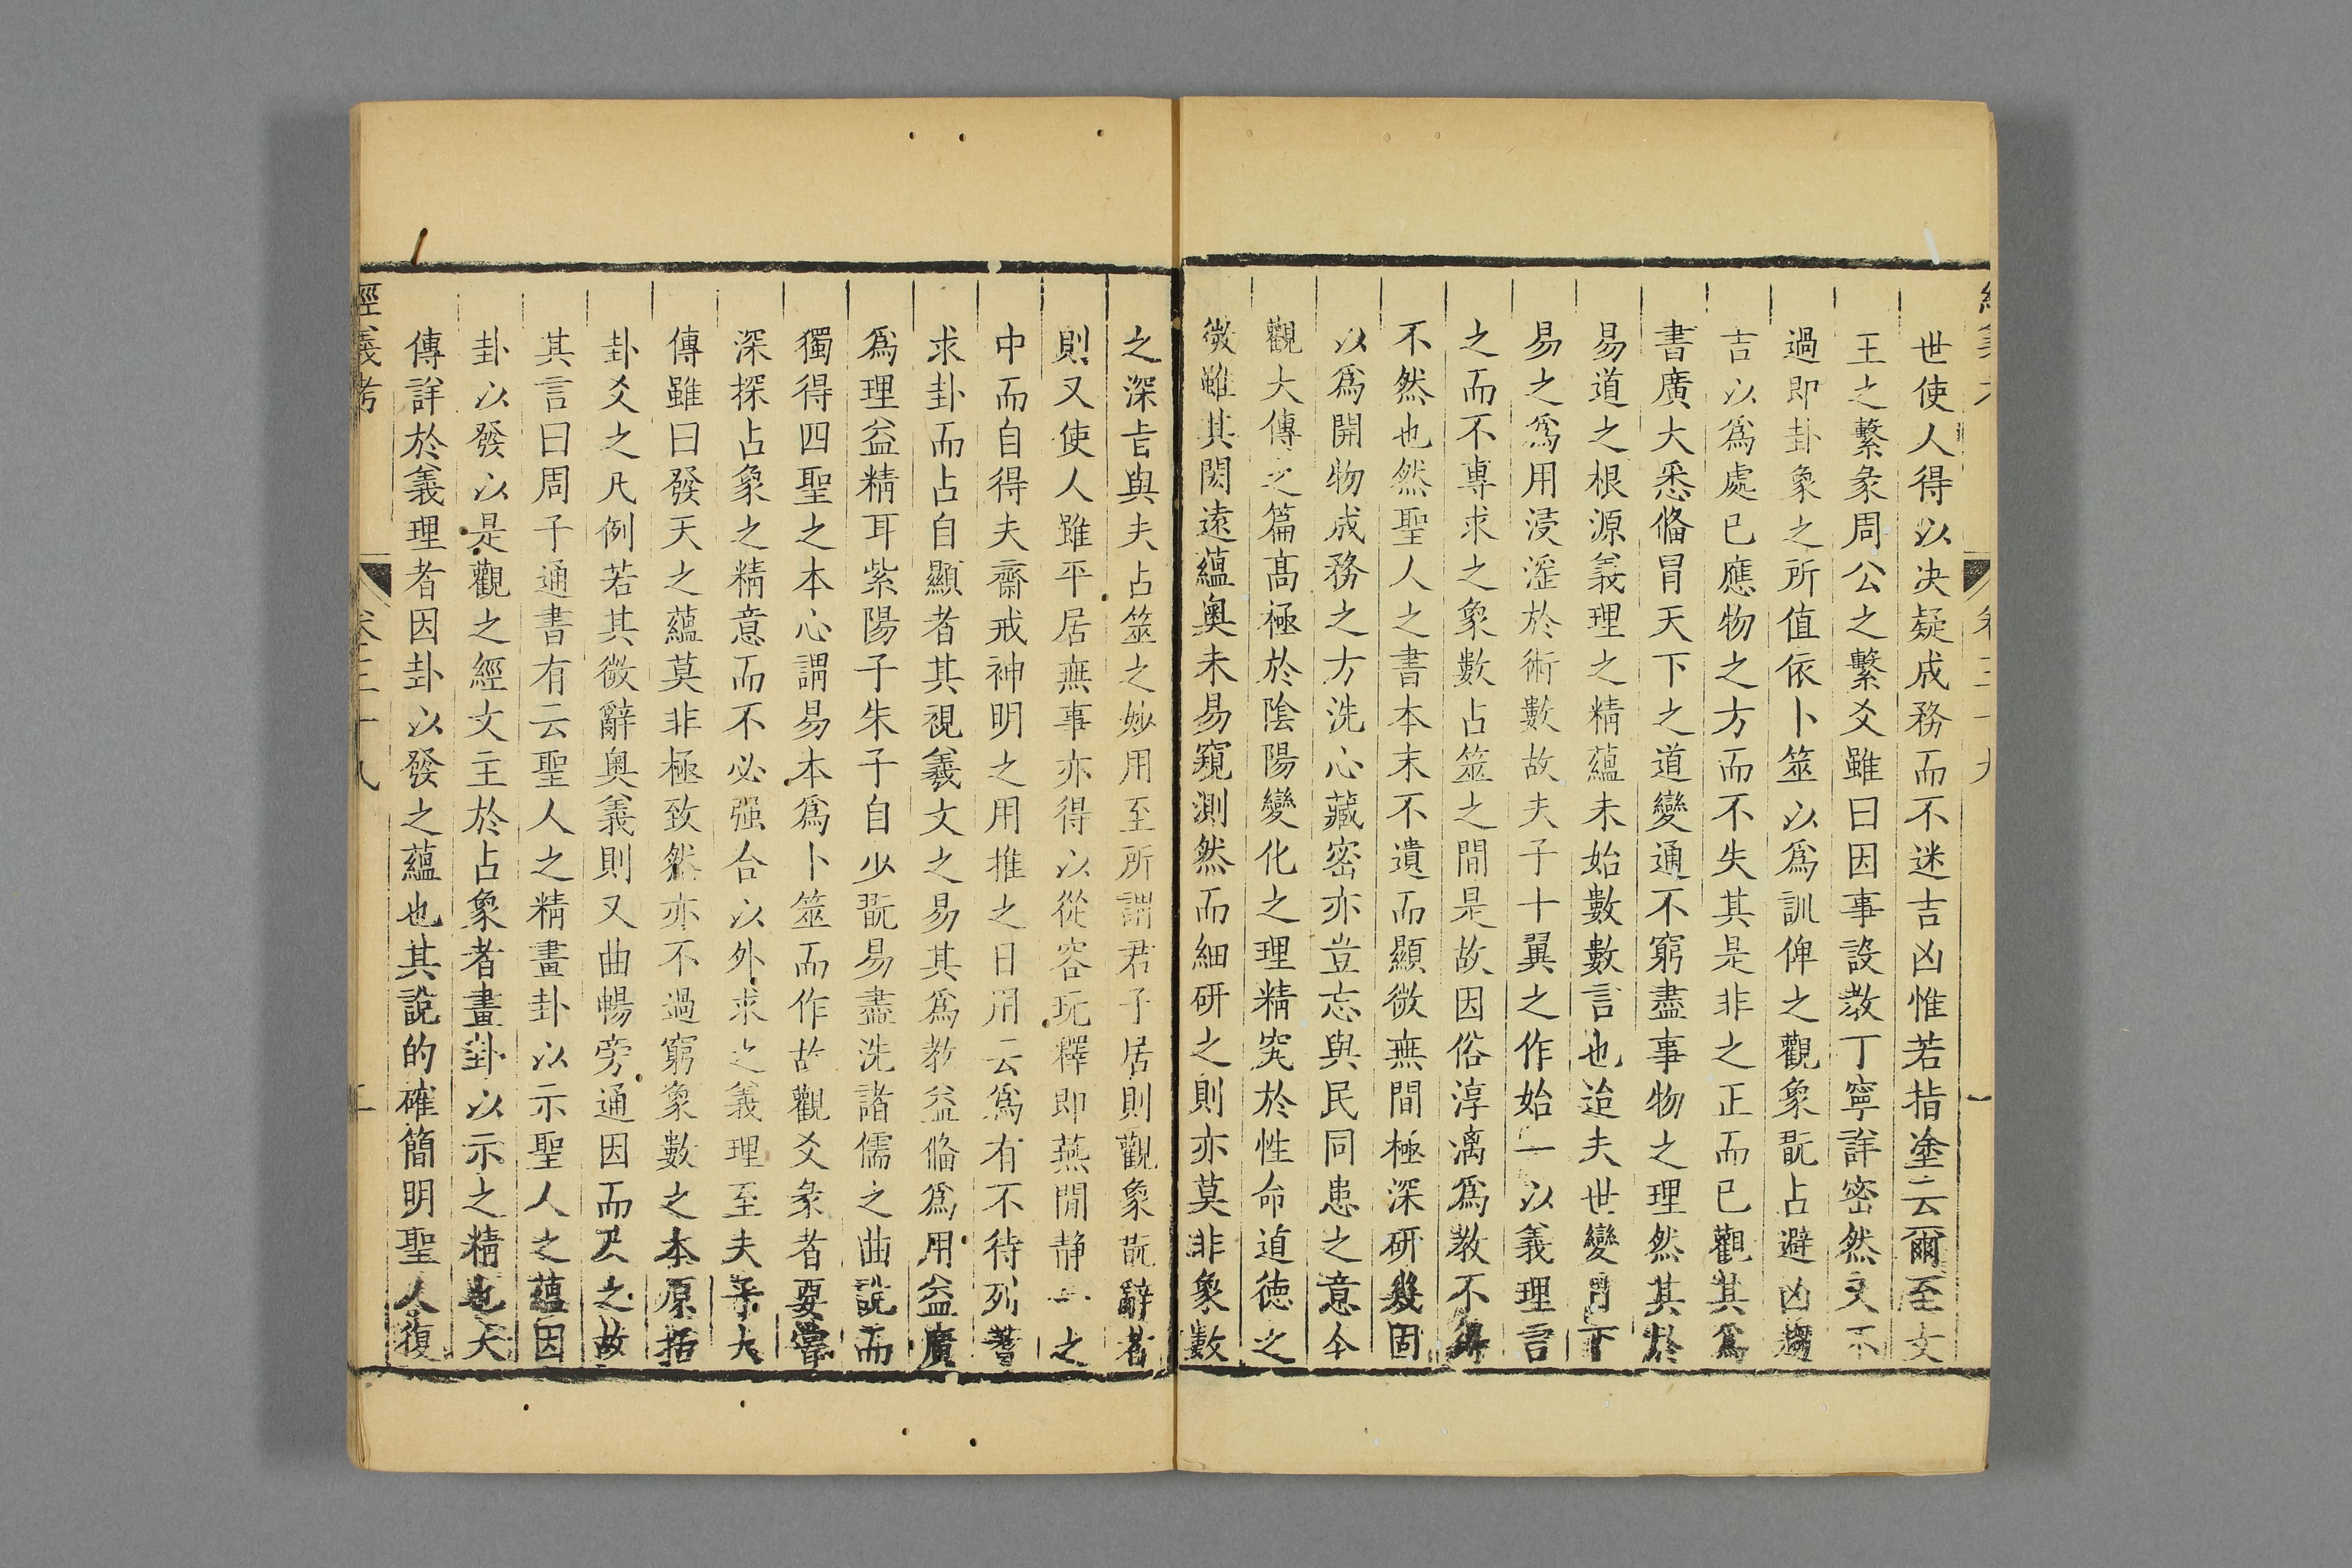 世使人得以决疑成務而不迷吉凶惟若指塗云爾至文
王之繫彖周公之繫爻雖曰因事設教丁寧詳密然又不
過即卦象之所值依卜筮以爲訓俾之觀象翫占避凶趨
吉以爲處已應物之方而不失其是非之正而已觀其爲
書廣大悉偹冒天下之道變通不窮盡事物之理然其於
易道之根源義理之精蘊未始數數言也迨夫世變下
易之爲用浸滛於術數故夫子十翼之作始一以義理言
之而不專求之象數占筮之間是故因俗淳漓爲教不
不然也然聖人之書本末不遺而顯微無間極深研幾固
以爲開物成務之方洗心藏密亦豈忘與民同患之意今
觀大傳之篇髙極於陰陽變化之理精究於性命道德之
微雖其閎遠蘊奧未易窺測然而細研之則亦莫非象數
之深旨與夫占筮之妙用至所謂君子居則觀象翫辭者
則又使人雖平居無事亦得以從容玩釋即燕閒静一之
中而自得夫齋戒神明之用推之日用云爲有不待列蓍
求卦而占自顯者其視羲文之易其爲教益偹爲用益廣
爲理益精耳紫陽子朱子自少翫易盡洗諸儒之曲說而
獨得四聖之本心謂易本爲卜筮而作故觀爻彖者要當
深探占象之精意而不必强合以外求之義理至夫子大
傳雖曰發天之蘊莫非極致然亦不過窮象數之本原括
卦爻之凡例若其微辭奥義則又曲暢旁通因而及之故
其言曰周子通書有云聖人之精畫卦以示聖人之蘊因
卦以發以是觀之經文主於占象者畫卦以示之精也大
傳詳於義理者因卦以發之蘊也其說的確簡明聖人復
經義考
卷三十八